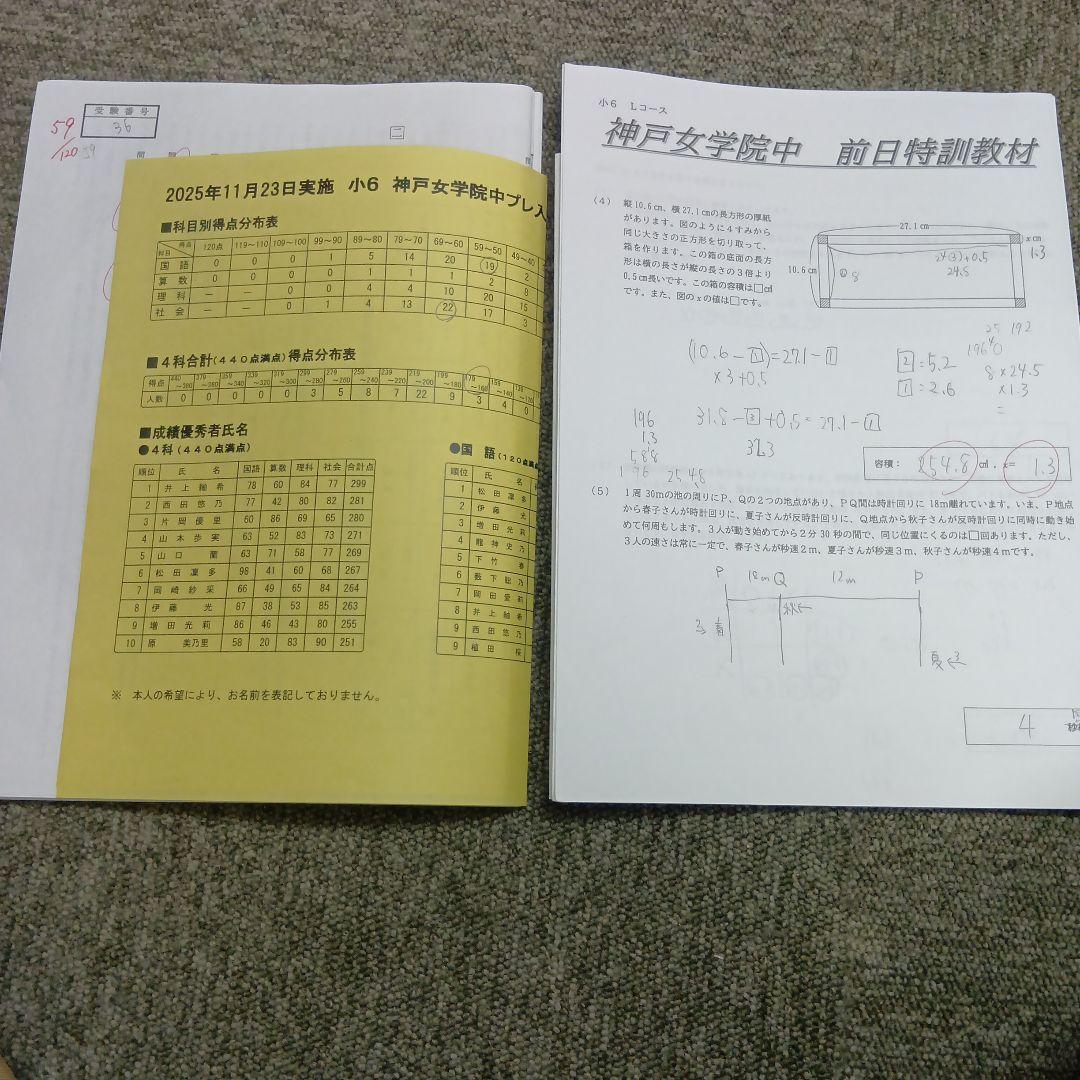 受験番号
36
59
/120
59
二
2025年11月23日実施 小6 神戸女学院中プレ入
■科目別得点分布表
得点 科目 120点 119～110 109～100 99～90 89～80 79～70 69～60 59～50 49～40
国語 0 0 0 1 5 14 20 19 2
算数 0 0 0 0 1 1 2 8
理科 － － 0 0 4 4 10 20 15
社会 － － 0 1 4 13 22 17 3
■4科合計(440点満点)得点分布表
得点 440～380 379～360 359～340 339～320 319～300 299～280 279～260 259～240 239～220 219～200 199～180 179～160 159～140 139～120
人数 0 0 0 0 0 3 5 8 7 22 9 3 4 0
■成績優秀者氏名
●4科(440点満点)
順位 氏名 国語 算数 理科 社会 合計点
1 井上紬希 78 60 84 77 299
2 西田悠乃 77 42 80 82 281
3 片岡優里 60 86 69 65 280
4 山本歩実 63 52 83 73 271
5 山口蘭 63 71 58 77 269
6 松田凜多 98 41 60 68 267
7 岡崎紗采 66 49 65 84 264
8 伊藤光 87 38 53 85 263
9 増田光莉 86 46 43 80 255
10 原美乃里 58 20 83 90 251
●国語(120点満点
順位 氏
1 松田凜多
2 伊藤光
3 増田光莉
4 龍神史乃
5 下竹春
6 藪下聡乃
7 岡田愛莉
8 井上紬希
9 西田悠乃
9 植田桜
※ 本人の希望により、お名前を表記しておりません。
小6 Lコース
神戸女学院中 前日特訓教材
(4) 縦10.6cm、横27.1cmの長方形の厚紙
があります。図のように4すみから
同じ大きさの正方形を切り取って、
箱を作ります。この箱の底面の長方
形は横の長さが縦の長さの3倍より
0.5cm長いです。この箱の容積は□cm³
です。また、図のxの値は□です。
27.1cm
xcm
1.3
10.6cm
8
24③+0.5
24.5
(10.6－②)=27.1－②
×3+0.5
31.8－⑥+0.5=27.1－②
②=5.2
①=2.6
25 192
1960
8×24.5
×1.3
=
196
1.3
588
196
254.8
容積：254.8 cm³、x= 1.3
(5) 1周30mの池の周りにP、Qの2つの地点があり、PQ間は時計回りに18m離れています。いま、P地点
から春子さんが時計回りに、夏子さんが反時計回りに、Q地点から秋子さんが反時計回りに同時に動き始
めて何周もします。3人が動き始めてから2分30秒の間で、同じ位置にくるのは□回あります。ただし、
3人の速さは常に一定で、春子さんが秒速2m、夏子さんが秒速3m、秋子さんが秒速4mです。
P 18m Q 12m P
秋←
春
夏←3
4